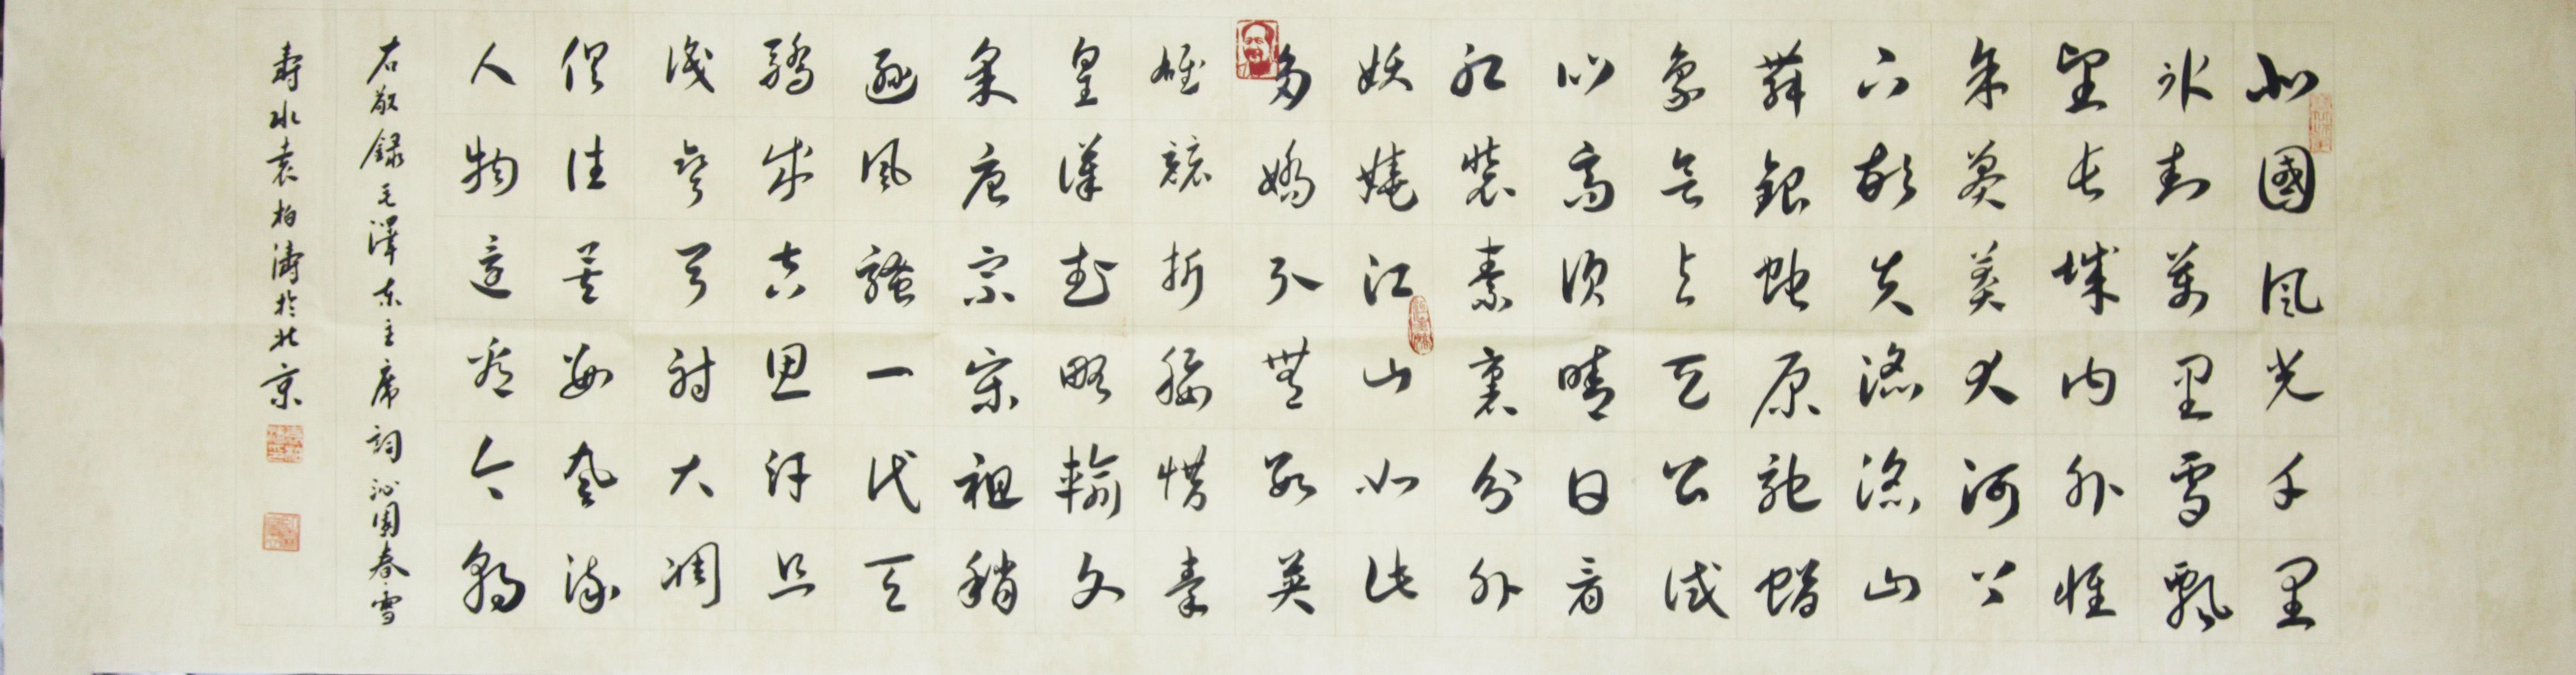 北國風光千里
冰封萬里雪飄
望長城內外惟
余莽莽大河上
下頓失滔滔山
舞銀蛇原馳蠟
象欲與天公試
比高須晴日看
紅裝素裹分外
妖嬈江山如此
多嬌引無數英
雄競折腰惜秦
皇漢武略輸文
采唐宗宋祖稍
遜風騷一代天
驕成吉思汗只
識彎弓射大凋
俱往矣數風流
人物還看今朝
右敬録毛澤東主席詞沁園春雪
壽水袁柏濤於北京